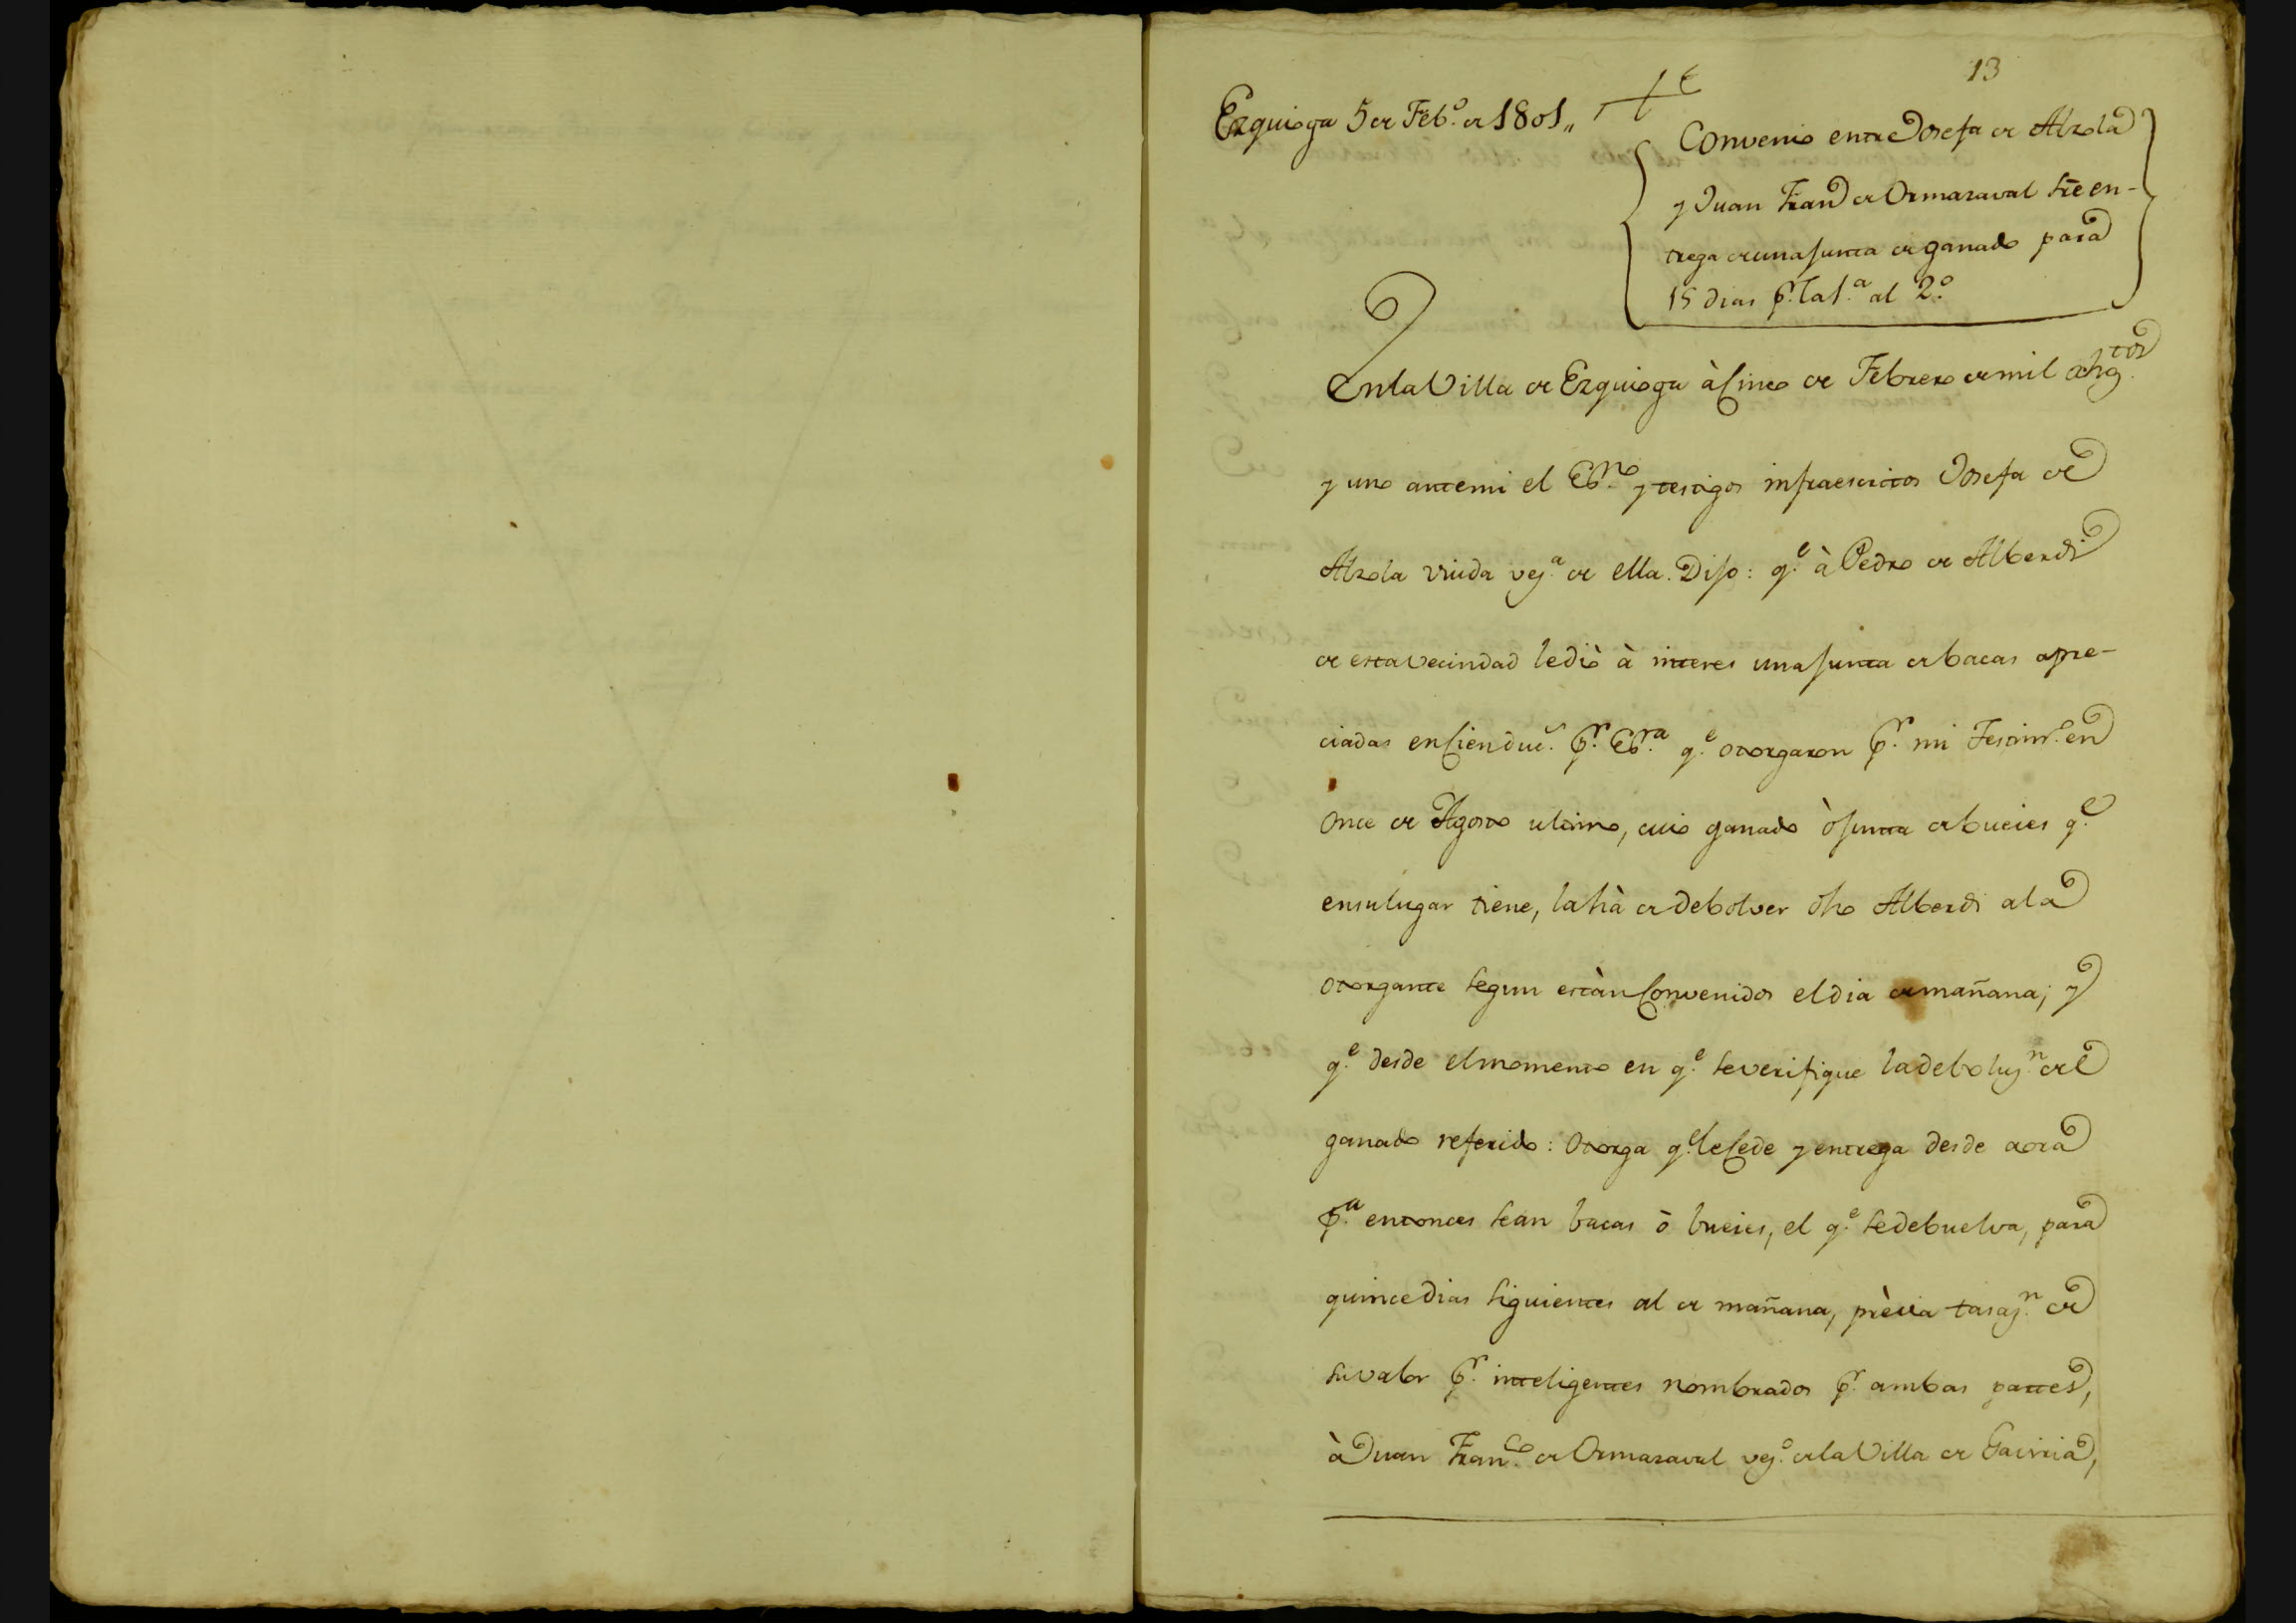 13
Ezquioga 5 de Feb.o de 1801,,
Convenio entre Josefa de Alzola
y Juan Fran.co de Ormazaval sre en-
trega de una junta de ganado para
15 dias pr. la 1.a al 2.o
En la Villa de Ezquioga à Cinco de Febrero de mil ochog.tos
y uno ante mi el Es.no y testigos infraescritos Josefa de
Alzola viuda vez.a de ella. Dijo: q.e à Pedro de Alberdi
de esta vecindad le diò à interes una junta de bacas apre-
ciadas en Cien duc.s pr. Es.ra q.e otorgaron pr. mi Testim.o en
once de Agosto ultimo, cuio ganado ò junta de bueies q.e
en su lugar tiene, la hà de debolver dho Alberdi a la
otorgante segun estàn Convenidos el dia de mañana; y
q.e desde el momento en q.e se verifique la deboluz.n del
ganado referido: Otorga q.e le Cede y entrega desde aora
p.a entonces sean bacas ò bueies, el q.e se debuelva, para
quince dias siguientes al de mañana, prèvia tasaz.n de
su valor pr. inteligentes nombrados pr. ambas partes,
à Juan Fran.co de Ormazaval vez.o de la Villa de Gaviria,